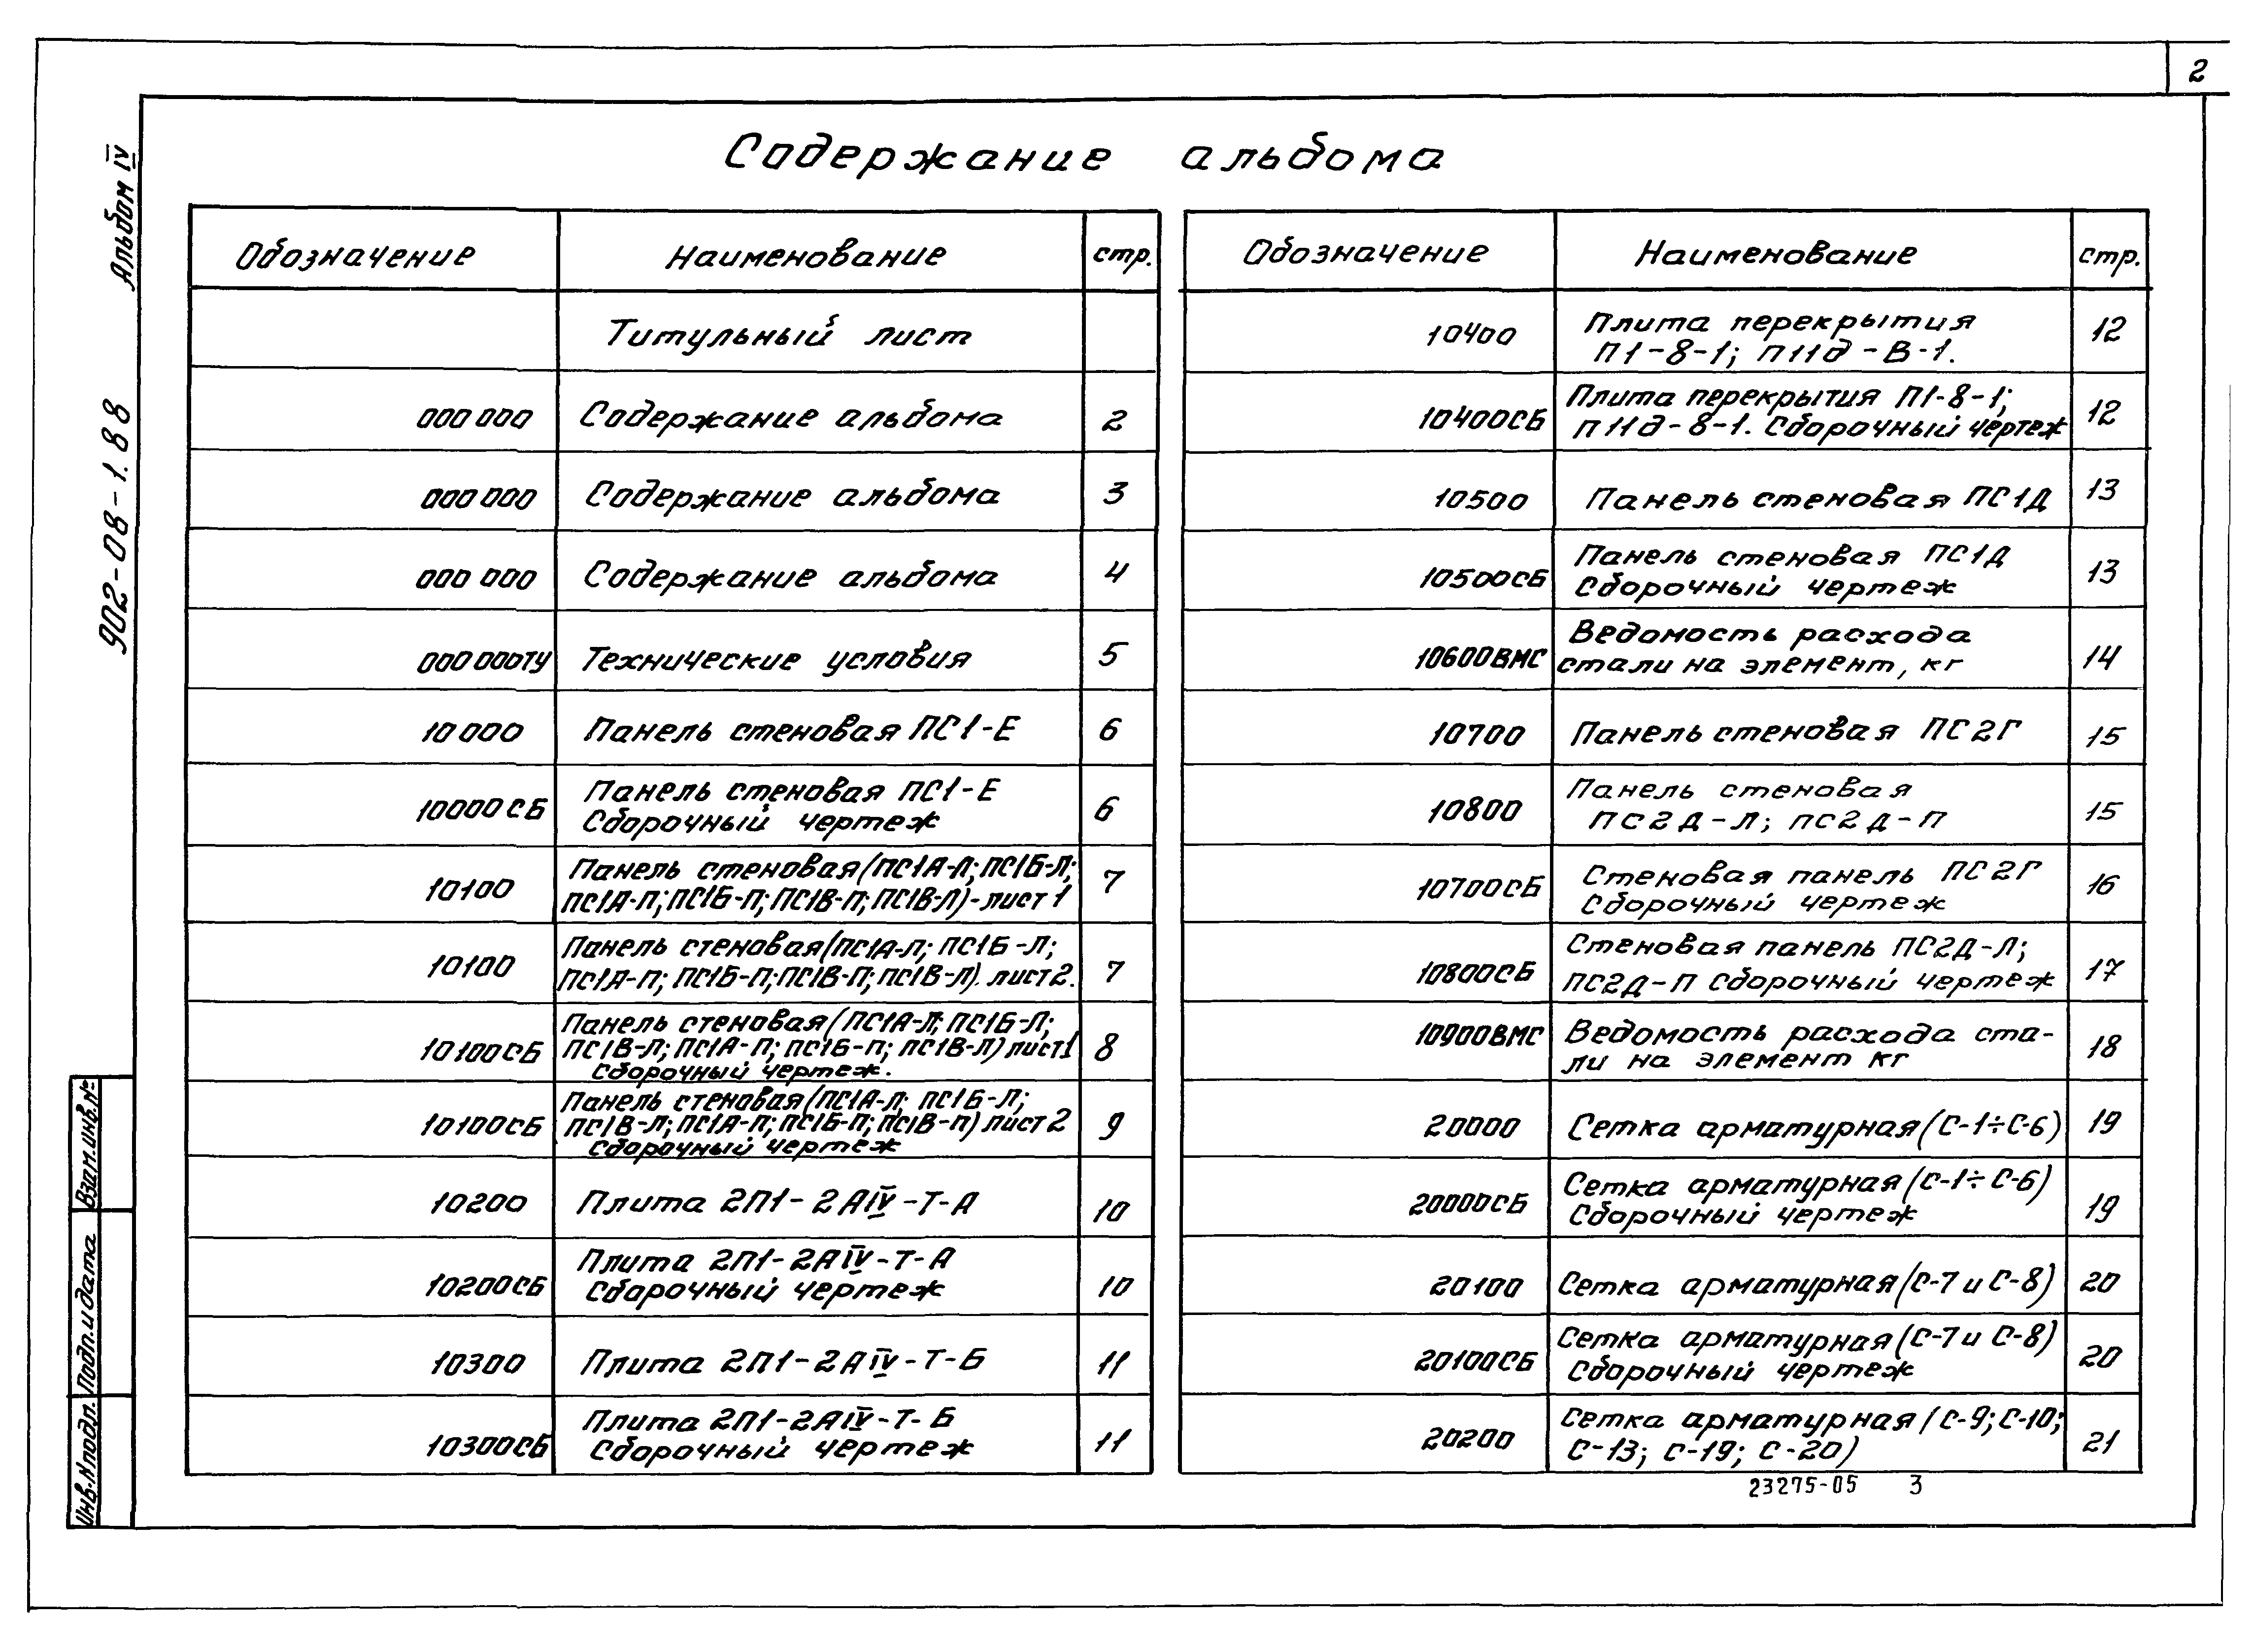 2
Содержание альбома
Альбом IV
902-08-1.88
Обозначение Наименование стр.
Титульный лист
000 000 Содержание альбома 2
000 000 Содержание альбома 3
000 000 Содержание альбома 4
000 000ТУ Технические условия 5
10 000 Панель стеновая ПС1-Е 6
10000СБ Панель стеновая ПС1-Е 6
Сборочный чертеж
10100 Панель стеновая (ПС1А-Л; ПС1Б-Л; 7
ПС1А-П; ПС1Б-П; ПС1В-П; ПС1В-Л)-лист 1
10100 Панель стеновая (ПС1А-Л; ПС1Б-Л; 7
ПС1А-П; ПС1Б-П; ПС1В-П; ПС1В-Л). лист 2.
10100СБ Панель стеновая (ПС1А-Л; ПС1Б-Л; 8
ПС1В-Л; ПС1А-П; ПС1Б-П; ПС1В-Л) лист 1
Сборочный чертеж.
10100СБ Панель стеновая (ПС1А-Л; ПС1Б-Л; 9
ПС1В-Л; ПС1А-П; ПС1Б-П; ПС1В-П) лист 2
Сборочный чертеж
10200 Плита 2П1-2АIV-Т-А 10
10200СБ Плита 2П1-2АIV-Т-А 10
Сборочный чертеж
10300 Плита 2П1-2АIV-Т-Б 11
10300СБ Плита 2П1-2АIV-Т-Б 11
Сборочный чертеж
Обозначение Наименование стр.
10400 Плита перекрытия 12
П1-8-1; П11д-В-1.
10400СБ Плита перекрытия П1-8-1; 12
П11д-8-1. Сборочный чертеж
10500 Панель стеновая ПС1Д 13
10500СБ Панель стеновая ПС1Д 13
Сборочный чертеж
10600ВМС Ведомость расхода 14
стали на элемент, кг
10700 Панель стеновая ПС2Г 15
10800 Панель стеновая 15
ПС2Д-Л; ПС2Д-П
10700СБ Стеновая панель ПС2Г 16
Сборочный чертеж
10800СБ Стеновая панель ПС2Д-Л; 17
ПС2Д-П Сборочный чертеж
10900ВМС Ведомость расхода ста- 18
ли на элемент кг
20000 Сетка арматурная (С-1÷С-6) 19
20000СБ Сетка арматурная (С-1÷С-6) 19
Сборочный чертеж
20100 Сетка арматурная (С-7 и С-8) 20
20100СБ Сетка арматурная (С-7 и С-8) 20
Сборочный чертеж
20200 Сетка арматурная (С-9; С-10; 21
С-13; С-19; С-20)
23275-05 3
Взам.инв.№
Подп.и дата
Инв.N подл.